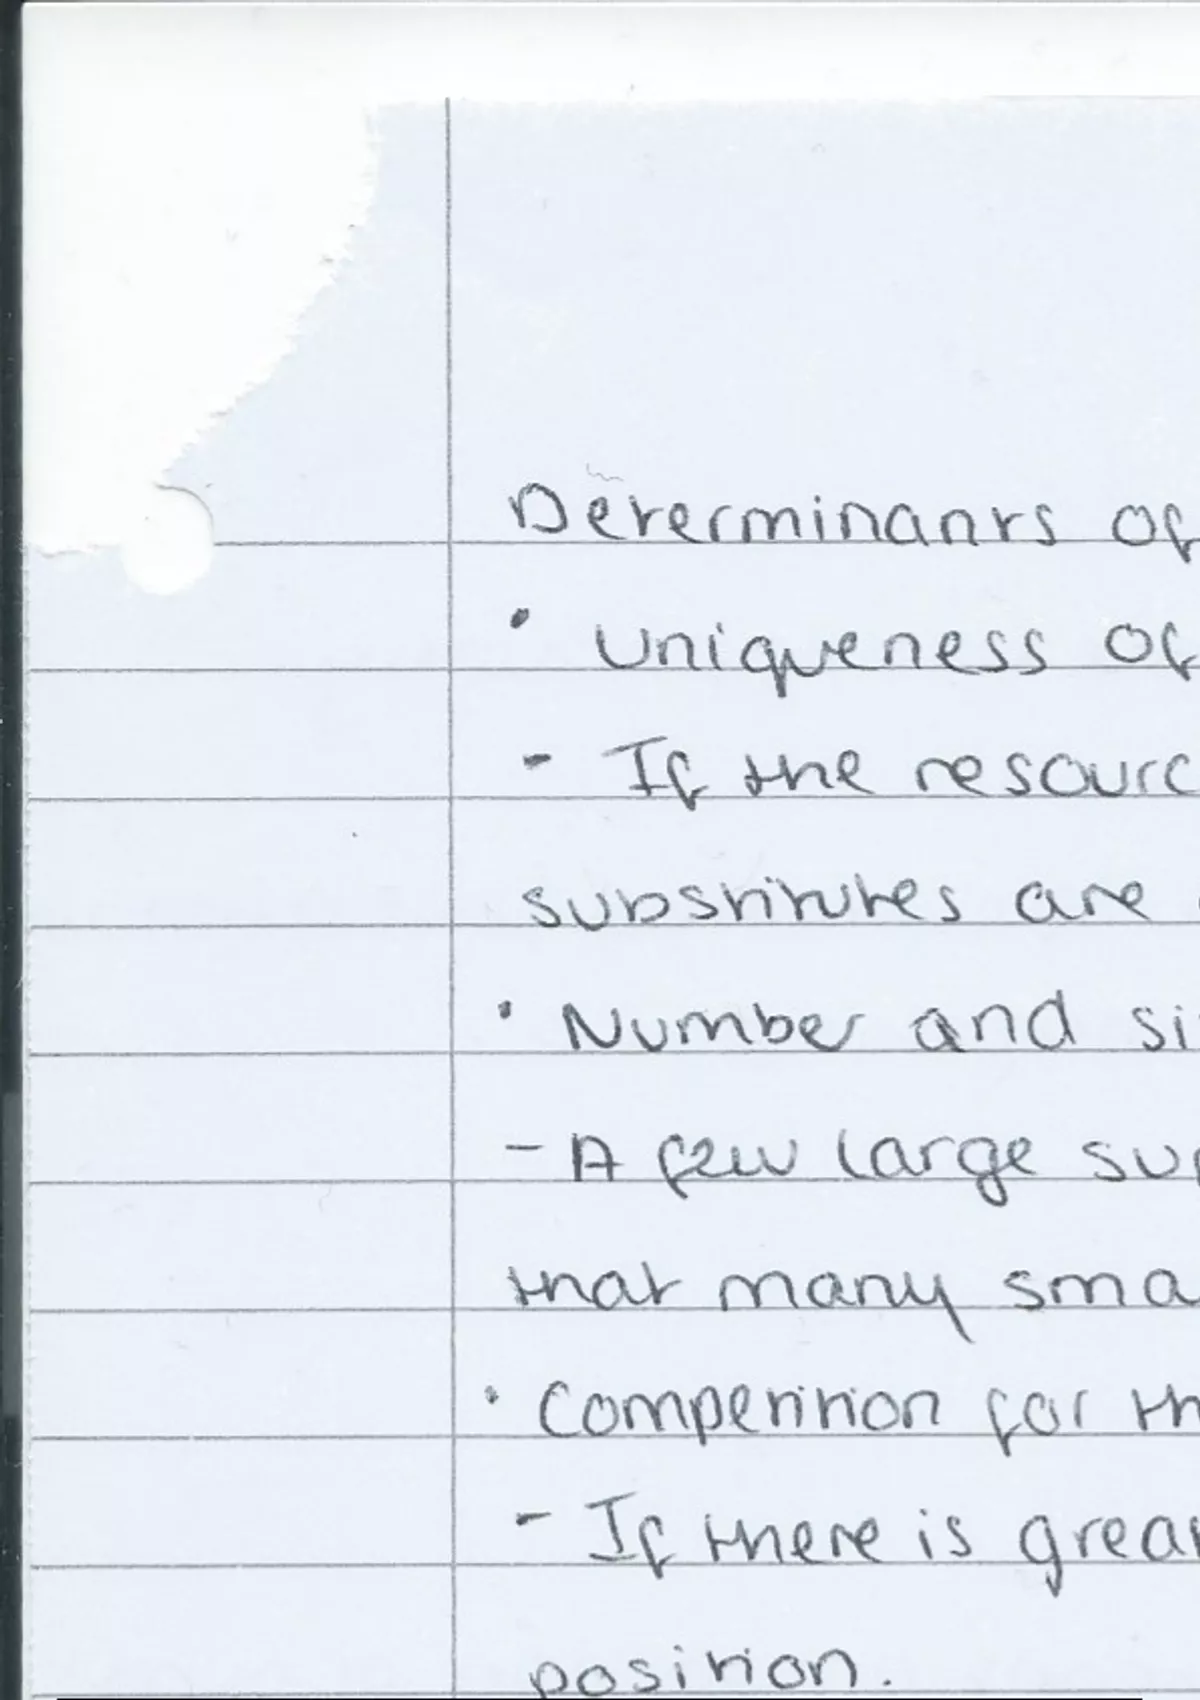 Determinants of
• Uniqueness of
- If the resourc
substitutes are
• Number and si
- A few large sup
that many sma
• Competition for th
- If there is great
position.